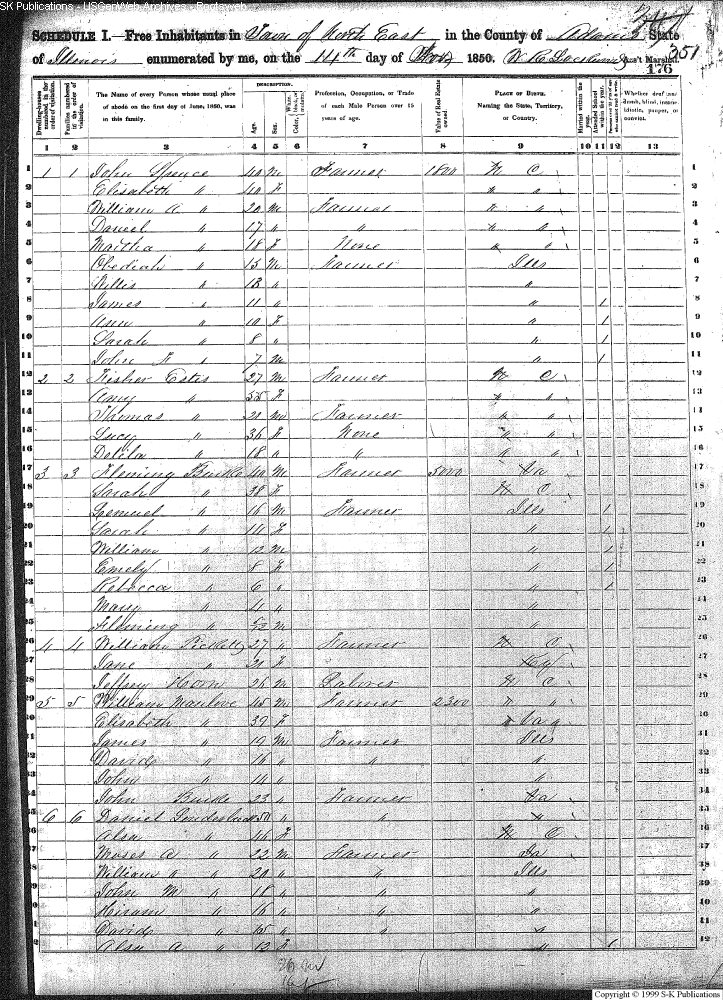 SK Publications - USGenWeb Archives -
SCHEDULE I.—Free Inhabitants in Town of North East in the County of Adams State
of Illinois enumerated by me, on the 14th day of Nov 1850. Ass't Marshal. 351
176
Dwelling-houses numbered in the order of visitation. Families numbered in the order of visitation. The Name of every Person whose usual place of abode on the first day of June, 1850, was in this family. DESCRIPTION. Age. Sex. Color, White, black, or mulatto. Profession, Occupation, or Trade of each Male Person over 15 years of age. Value of Real Estate owned. PLACE OF BIRTH. Naming the State, Territory, or Country. Married within the year. Attended School within the year. Whether deaf and dumb, blind, insane, idiotic, pauper, or convict.
1 2 3 4 5 6 7 8 9 10 11 12 13
1 1 1 John Spence 40 m Farmer 1800 N C 1
2 Elisabeth " 40 F " " 2
3 William A " 20 m Farmer " " 3
4 Daniel " 17 " " " " 4
5 Martha " 18 F None " " 5
6 Obediah " 15 m Farmer Ills 6
7 Willis " 13 " " 7
8 James " 11 " " 1 8
9 Ann " 10 F " 1 9
10 Sarah " 8 " " 1 10
11 John " 7 m " 1 11
12 2 2 Fisher Estes 27 m Farmer N C 12
13 Amy " 55 F " " 13
14 Thomas " 21 m Farmer " " 14
15 Lucy " 36 F None " " 15
16 Delila " 18 " " " " 16
17 3 3 Fleming Burke 40 m Farmer 5000 Va 17
18 Sarah " 38 F N C 18
19 Lemuel " 16 m Farmer Ills 1 19
20 Sarah " 14 F " 1 20
21 William " 12 m " 1 21
22 Emely " 8 F " 1 22
23 Rebecca " 6 " " 1 23
24 Mary " 4 " " 24
25 Fleming " m " 25
26 4 4 William 27 " Farmer N C 26
27 Jane " 21 F Ky 27
28 Jeffrey Horn 26 m Laborer N C 28
29 5 5 William Manlove 45 m Farmer 2300 " " 29
30 Elisabeth " 39 F 30
31 James " 19 m Farmer Ills 31
32 David " 16 " " " 32
33 John " 14 " " 33
34 John Burke 23 " Farmer Va 34
35 6 6 Daniel 50 " " " 35
36 Alsa " 46 F N C 36
37 Moses A " 22 m Farmer 37
38 William " 20 " " Ills 38
39 John M " 18 " " " 39
40 Hiram " 16 " " " 40
41 David " 15 " " " 41
42 Alsa A " 12 F " 1 42
Copyright © 1999 S-K Publications